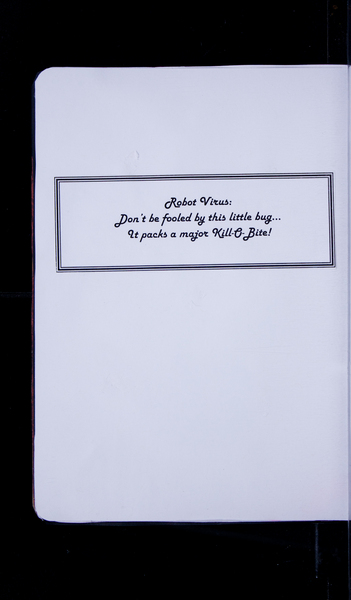 Robot Virus:
Don't be fooled by this little bug...
It packs a major Kill-O-Bite!